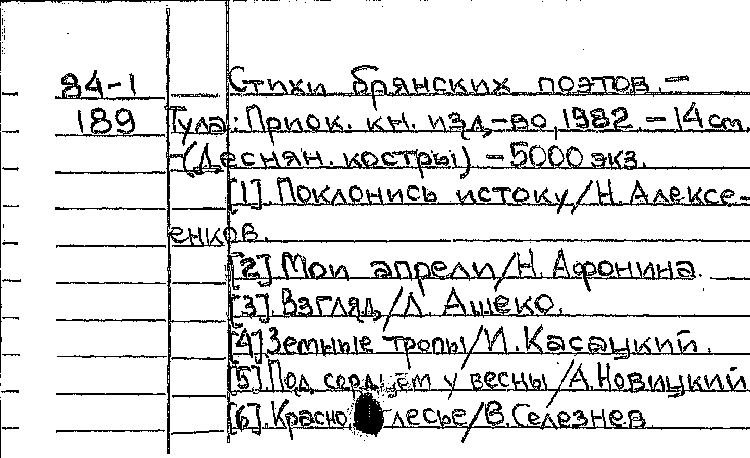 84-1 Стихи брянских поэтов. –
189 Тула: Приок. кн. изд-во, 1982. – 14 cm.
– (Деснян. костры) – 5000 экз.
[1]. Поклонись истоку / Н. Алексе-
енков.
[2]. Мои апрели / Н. Афонина.
[3]. Взгляд / Л. Ашеко.
[4]. Земные тропы / И. Касацкий.
[5]. Под сердцем у весны / А. Новицкий
[6]. / В. Селезнев